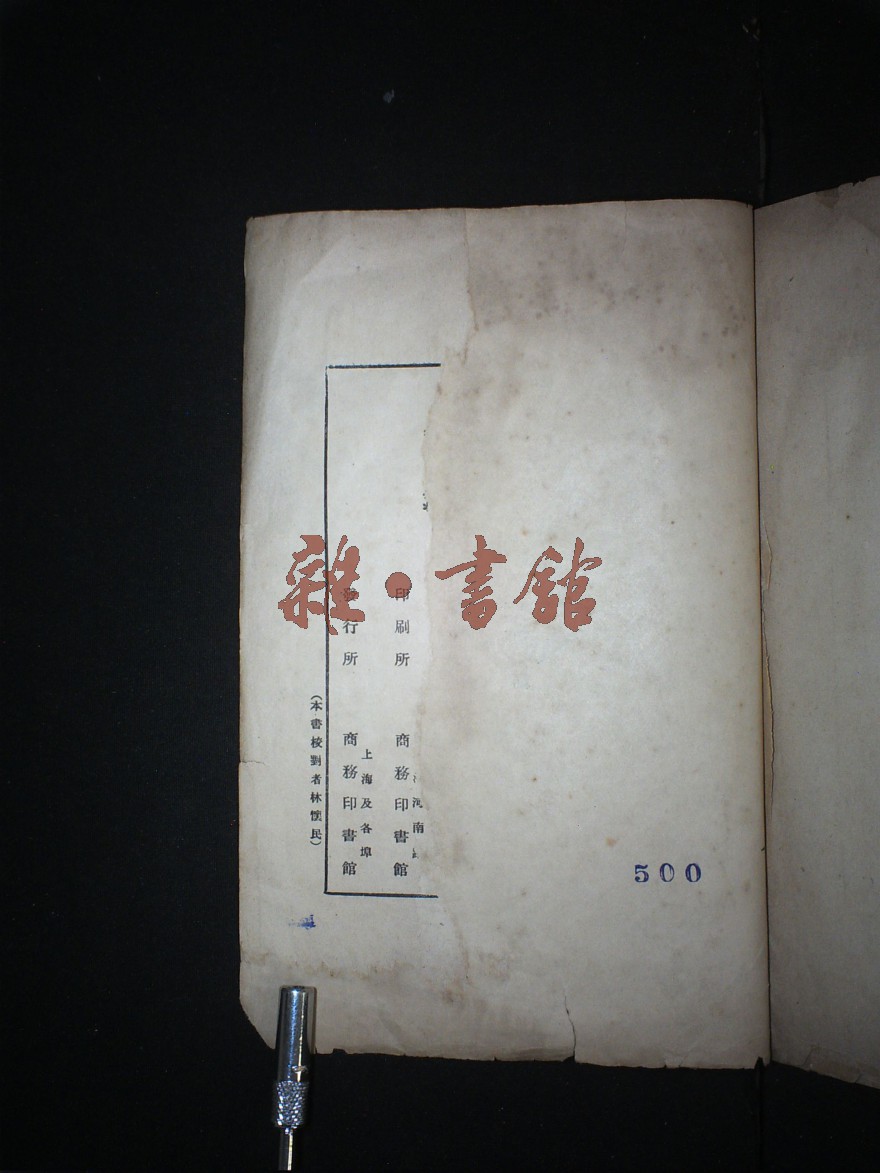 雜·書館
河南
印刷所 商務印書館
上海及各埠
發行所 商務印書館
(本書校對者林懷民)
500